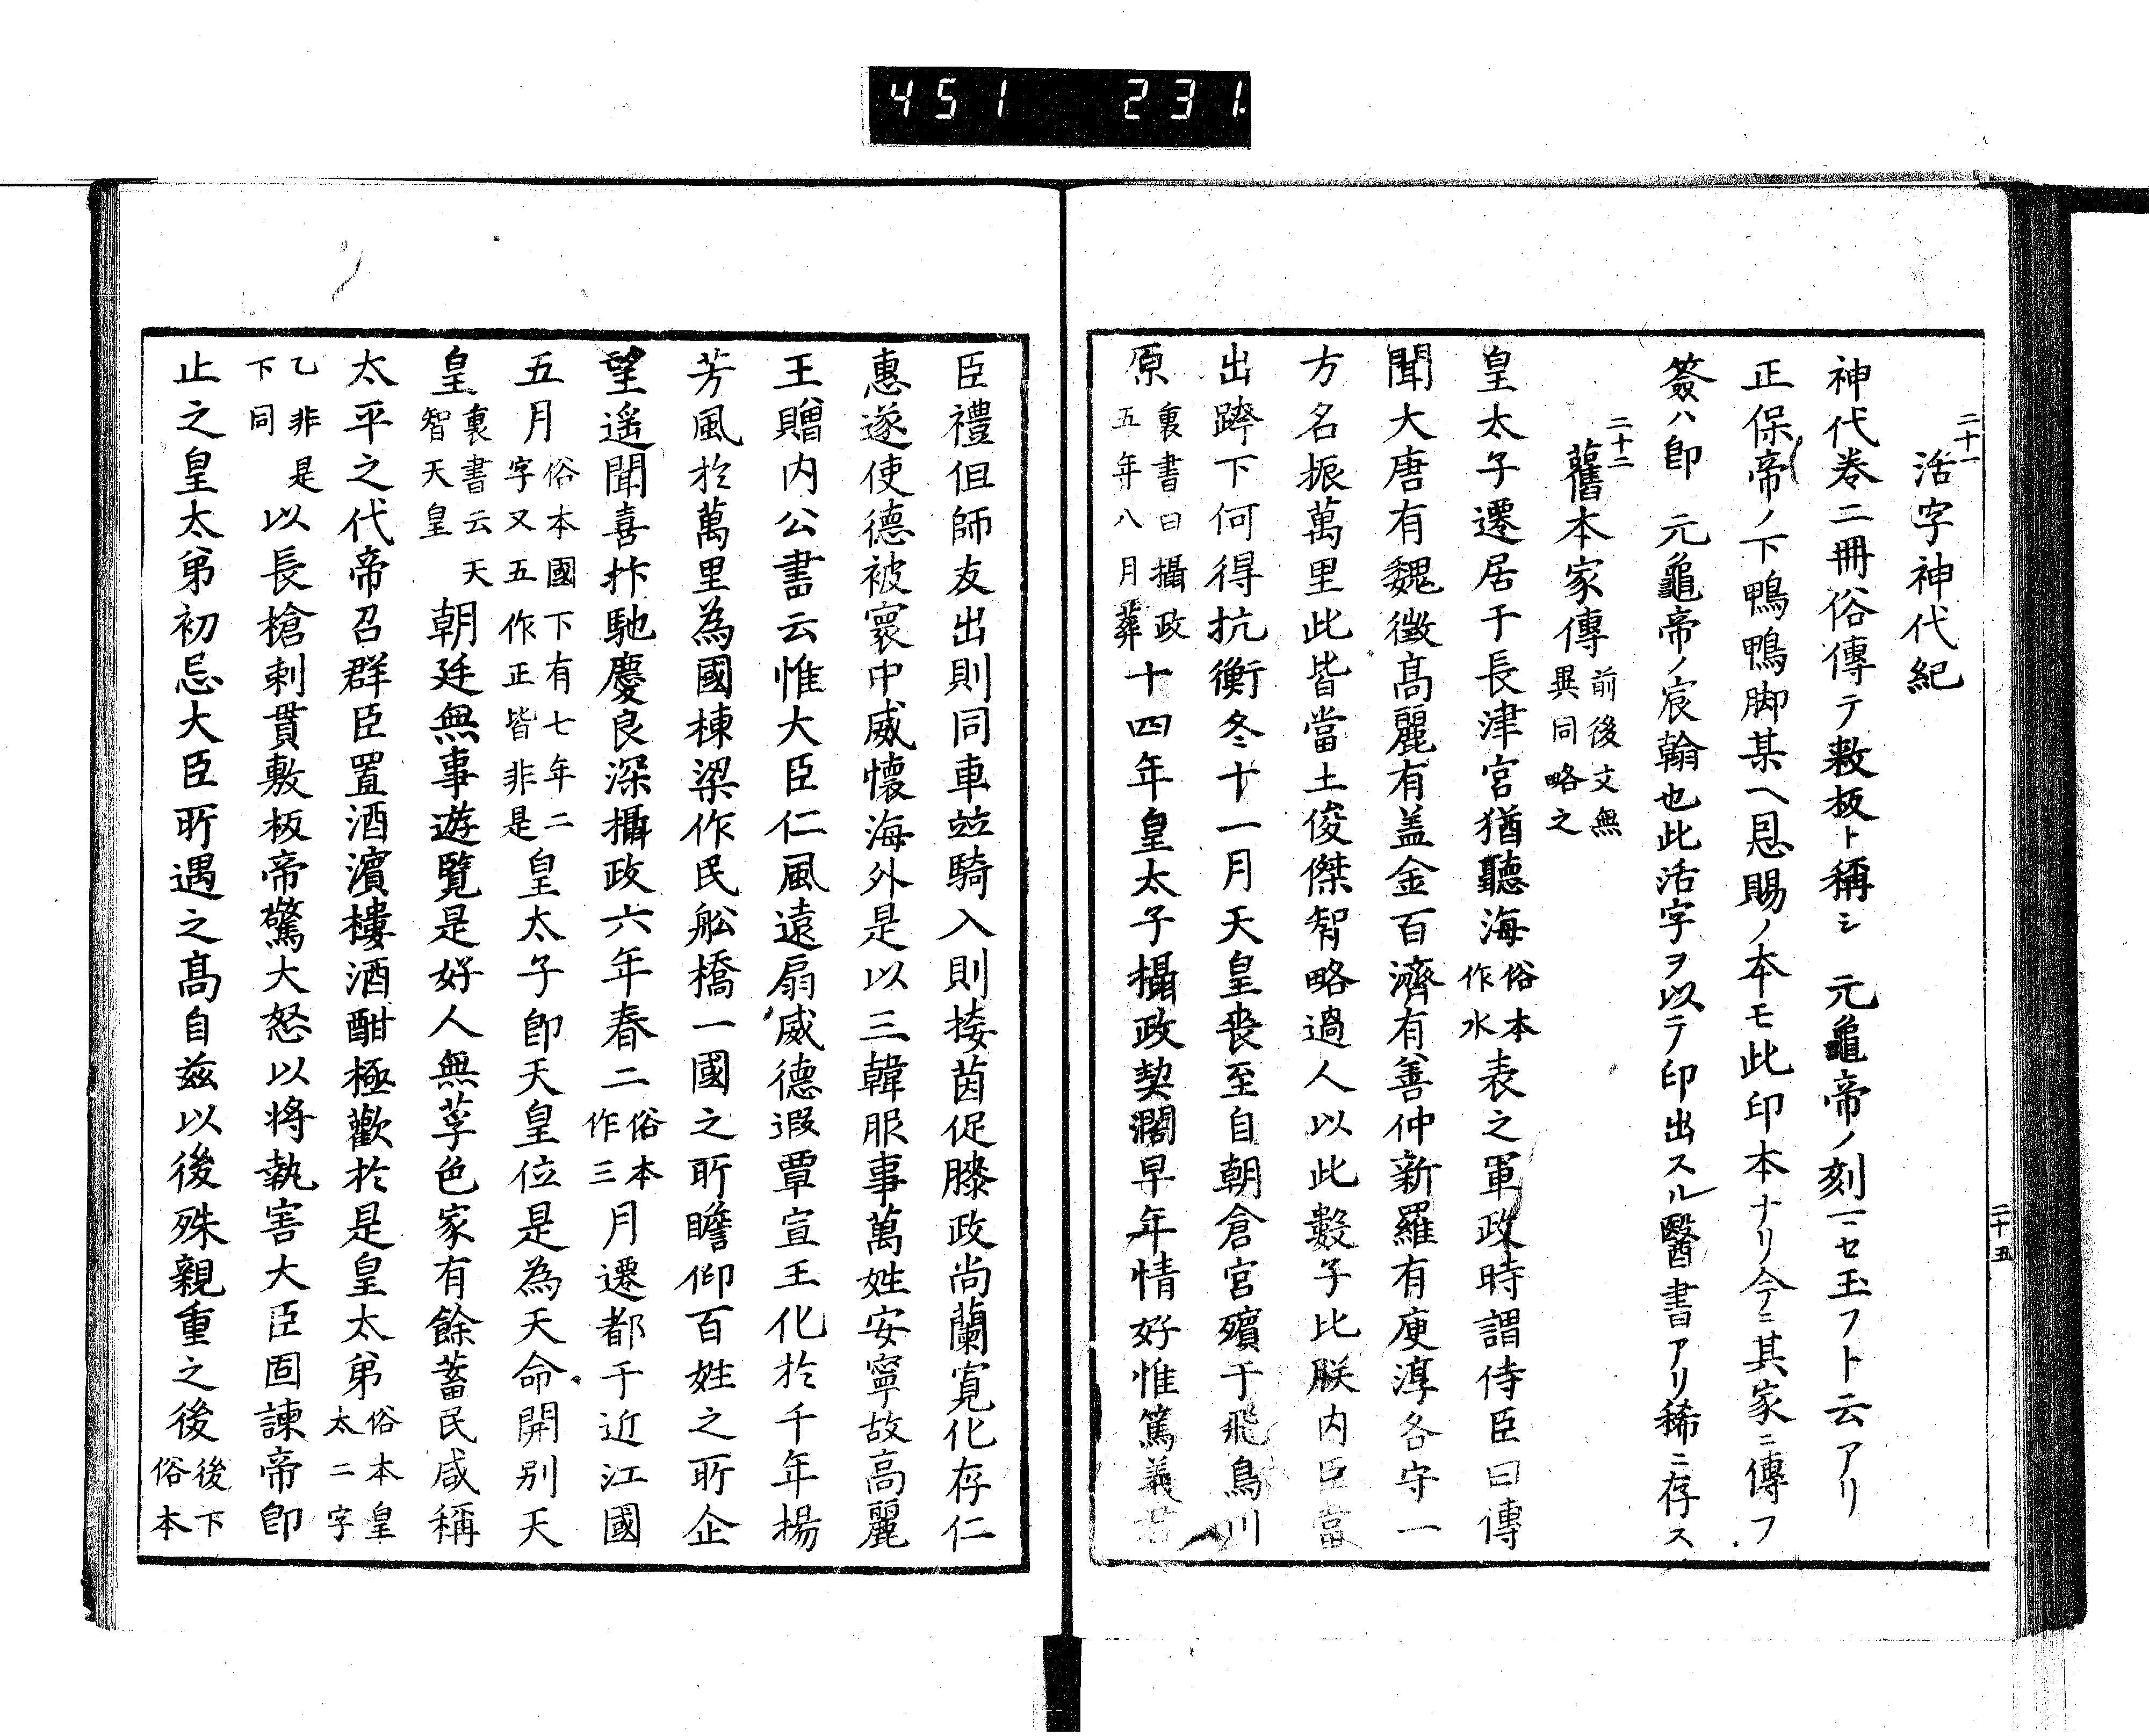 451 231
二十一
活字神代紀
神代卷二冊俗傳テ敕板ト稱シ 元龜帝ノ刻ニセ玉フト云アリ
正保帝ノ下鴨鴨脚某ヘ恩賜ノ本モ此印本ナリ今ニ其家ニ傳フ
簽ハ卽 元龜帝ノ宸翰也此活字ヲ以テ印出スル醫書アリ稀ニ存ス
二十二
舊本家傳 前後文無異同略之
皇太子遷居于長津宮猶聽海 俗本作水 表之軍政時謂侍臣曰傳
聞大唐有魏徵高麗有盖金百濟有善仲新羅有庾淳各守一
方名振萬里此皆當土俊傑智略過人以此數子比朕內臣當
出跨下何得抗衡冬十一月天皇喪至自朝倉宮殯于飛鳥川
原 裏書曰攝政五年八月葬 十四年皇太子攝政契闊早年情好惟篤義君
二十五
臣禮但師友出則同車竝騎入則接茵促膝政尚蘭寬化存仁
惠遂使德被寰中威懷海外是以三韓服事萬姓安寧故高麗
王贈內公書云惟大臣仁風遠扇威德遐覃宣王化於千年揚
芳風於萬里為國棟梁作民舩橋一國之所瞻仰百姓之所企
望遥聞喜抃馳慶良深攝政六年春二 俗本作三 月遷都于近江國
五月 俗本國下有七年二字又五作正皆非是 皇太子卽天皇位是為天命開別天
皇 裏書云天智天皇 朝廷無事遊覽是好人無莩色家有餘蓄民咸稱
太平之代帝召群臣置酒濱樓酒酣極歡於是皇太弟 俗本皇太二字
乙非是下同 以長槍刺貫敷板帝驚大怒以将執害大臣固諫帝卽
止之皇太弟初忌大臣所遇之高自茲以後殊親重之後 後下俗本